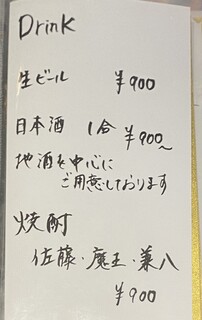 Drink
生ビール ¥900
日本酒 1合 ¥900~
地酒を中心に
ご用意しております
焼酎
佐藤・魔王・兼八
¥900